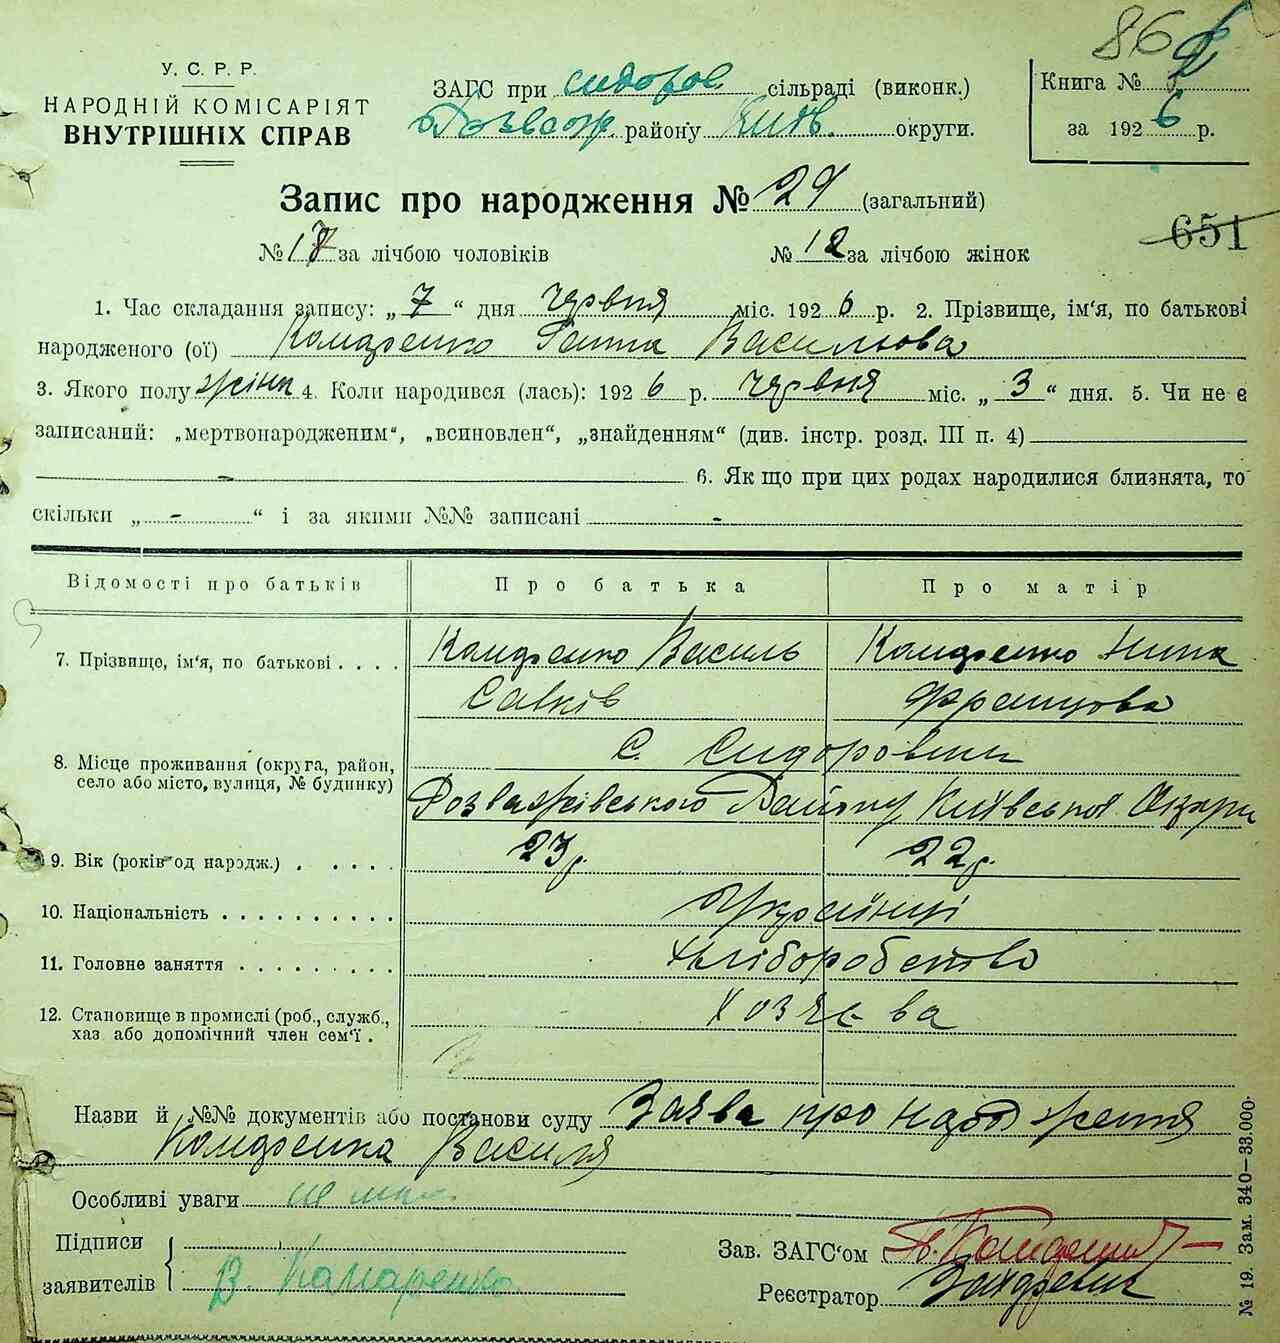 86
У. С. Р. Р.
НАРОДНІЙ КОМІСАРІЯТ
ВНУТРІШНІХ СПРАВ
ЗАГС при сидоров. сільраді (виконк.)
Розваж. району Київ. округи.
Книга №
за 1926 р.
Запис про народження № 29 (загальний)
№ 17 за лічбою чоловіків № 12 за лічбою жінок
651
1. Час складання запису: „ 7 “ дня червня міс. 1926 р. 2. Прізвище, ім‘я, по батькові
народженого (ої) Комаренко Ганна Васильова
3. Якого полу жінк 4. Коли народився (лась): 1926 р. червня міс. „ 3 “ дня. 5. Чи не є
записаний: „мертвонародженим“, „всиновлен“, „знайденням“ (див. інстр. розд. III п. 4)
- 6. Як що при цих родах народилися близнята, то
скільки „ - “ і за якими №№ записані -
Відомості про батьків Про батька Про матір
7. Прізвище, ім‘я, по батькові . . . . Комаренко Василь Комаренко Нина
Савків Францова
8. Місце проживання (округа, район, село або місто, вулиця, № будинку) С. Сидоровичи
Розважівського Району Київської Округи
9. Вік (років од народж.) . . . . . 23 р. 22 р.
10. Національність . . . . . . . . . . Українці
11. Головне заняття . . . . . . . . . Хліборобство
12. Становище в промислі (роб., служб., хаз або допомічний член сем‘ї . Хозяєва
Назви й №№ документів або постанови суду Заява про народження
Комаренка Василя
Особливі уваги не має
Підписи
заявителів В. Комаренко
Зав. ЗАГС‘ом
Реєстратор
№ 19. Зам. 340—33.000.